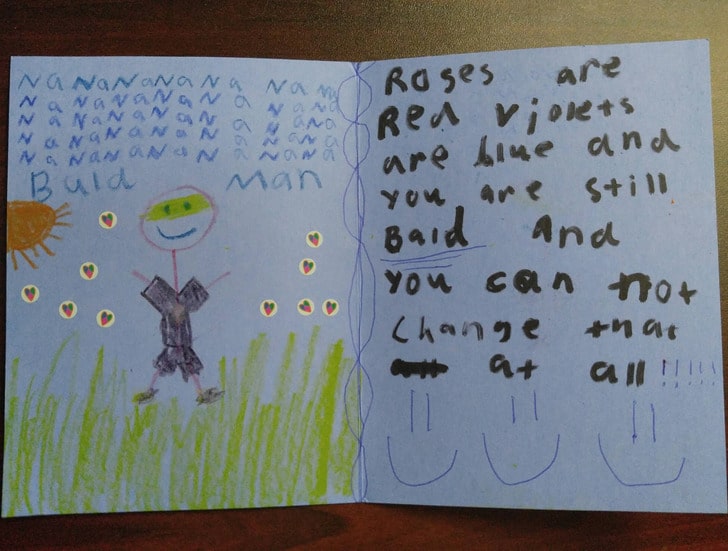 NaNaNaNaNa NaNa
NaNaNaNaNa NaNa
NaNaNaNaNa NaNa
NaNaNaNaNa NaNa
NaNaNaNaNa NaNa
Buld Man
Roses are
Red violets
are blue and
you are still
Bald And
you can not
change that
at all !!!!!